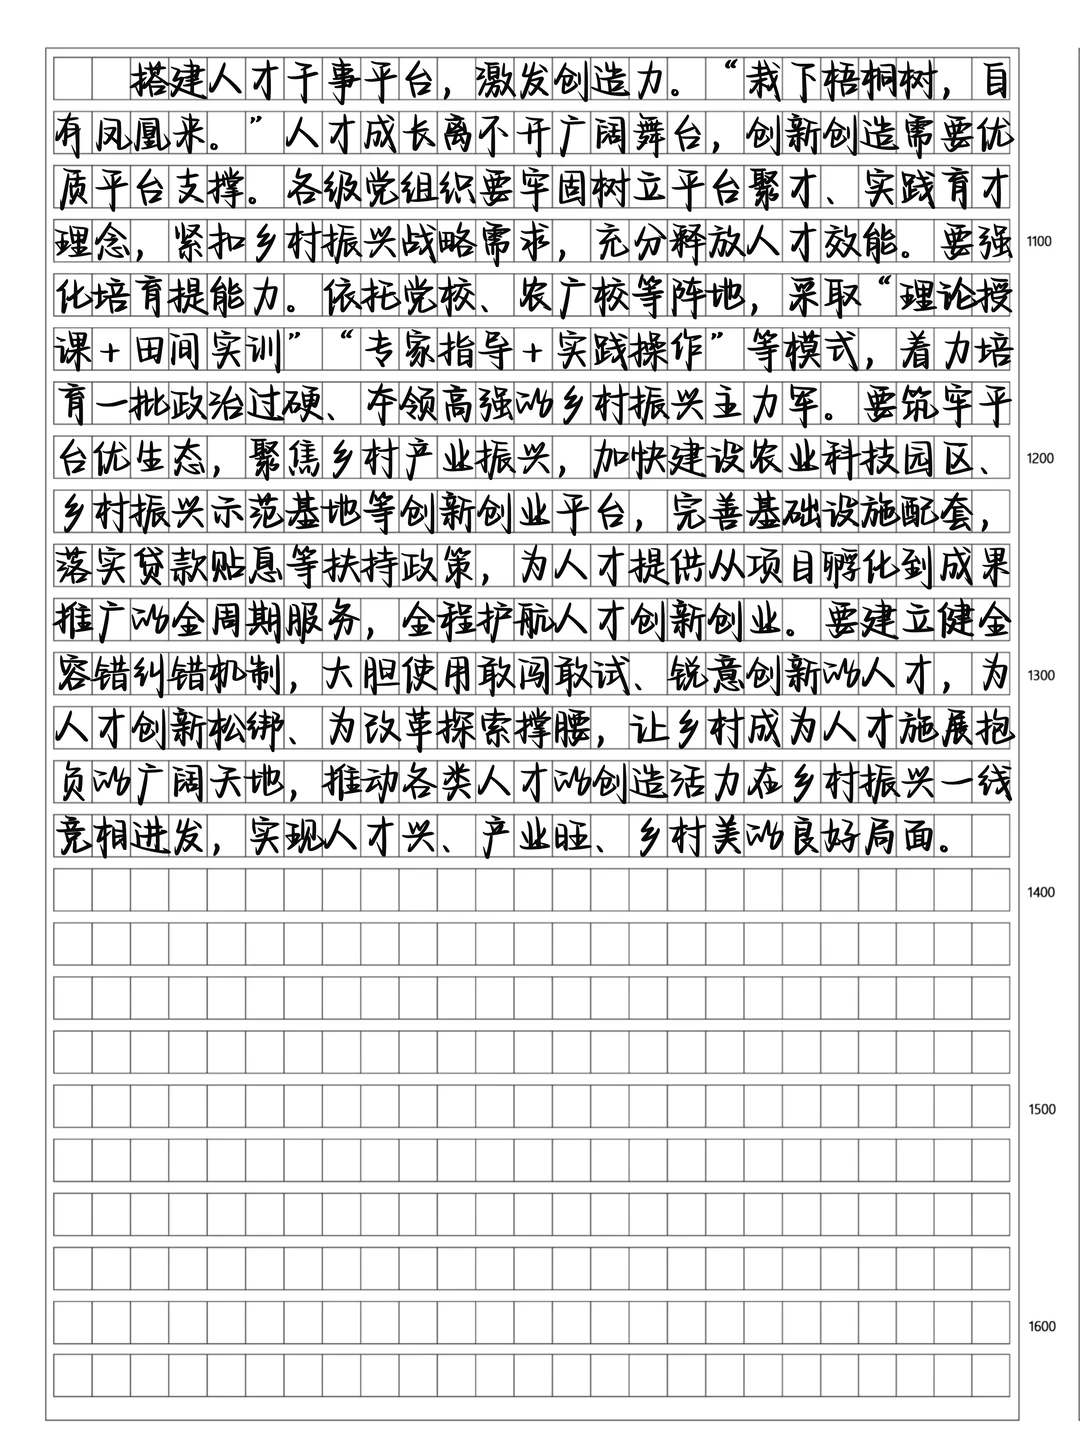 搭建人才干事平台，激发创造力。“栽下梧桐树，自
有凤凰来。”人才成长离不开广阔舞台，创新创造需要优
质平台支撑。各级党组织要牢固树立平台聚才、实践育才
理念，紧扣乡村振兴战略需求，充分释放人才效能。要强
1100
化培育提能力。依托党校、农广校等阵地，采取“理论授
课+田间实训”“专家指导+实践操作”等模式，着力培
育一批政治过硬、本领高强的乡村振兴主力军。要筑牢平
台优生态，聚焦乡村产业振兴，加快建设农业科技园区、
1200
乡村振兴示范基地等创新创业平台，完善基础设施配套，
落实贷款贴息等扶持政策，为人才提供从项目孵化到成果
推广的全周期服务，全程护航人才创新创业。要建立健全
容错纠错机制，大胆使用敢闯敢试、锐意创新的人才，为
1300
人才创新松绑、为改革探索撑腰，让乡村成为人才施展抱
负的广阔天地，推动各类人才的创造活力在乡村振兴一线
竞相迸发，实现人才兴、产业旺、乡村美的良好局面。
1400
1500
1600